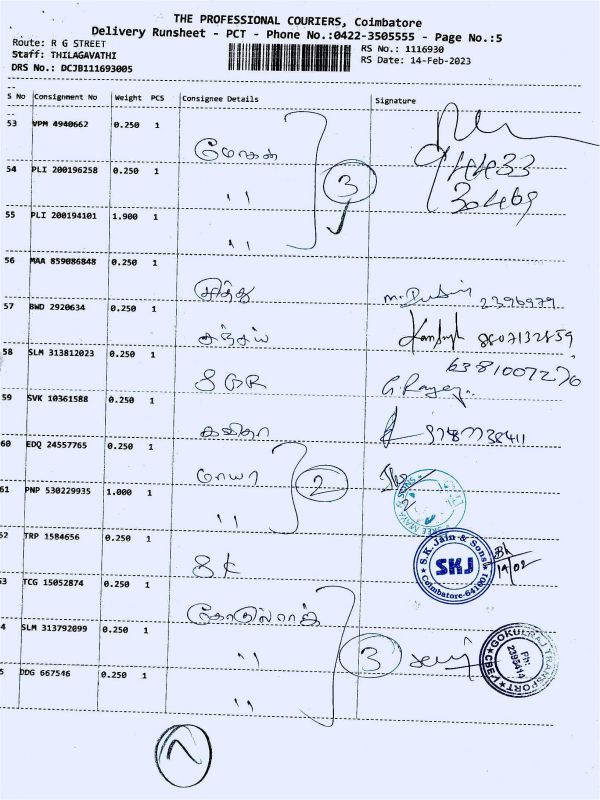 THE PROFESSIONAL COURIERS, Coimbatore
Delivery Runsheet - PCT - Phone No.:0422-3505555 - Page No.:5
Route: R G STREET
RS No.: 1116930
Staff: THILAGAVATHI
RS Date: 14-Feb-2023
DRS No.: DCJB111693005
S No Consignment No Weight PCS Consignee Details Signature
53 VPM 4940662 0.250 1
மோகன்
54 PLI 200196258 0.250 1
,, 3
55 PLI 200194101 1.900 1
,,
56 MAA 859086848 0.250 1
சித்து 2396979
57 BWD 2920634 0.250 1
சஞ்சய் 8807132859
58 SLM 313812023 0.250 1
6381007270
SBR
59 SVK 10361588 0.250 1
கவிதா
60 EDQ 24557765 0.250 1
மாயா 2
61 PNP 530229935 1.000 1
,,
62 TRP 1584656 0.250 1
SK
S.K. Jain & Sons SKJ Coimbatore-641001
14/02
63 TCG 15052874 0.250 1
கோகுல்ராஜ்
4 SLM 313792099 0.250 1
,, 3
GOKULRAJ TRANSPORT CBE-1 Ph: 2395414
5 DDG 667546 0.250 1
,,
7